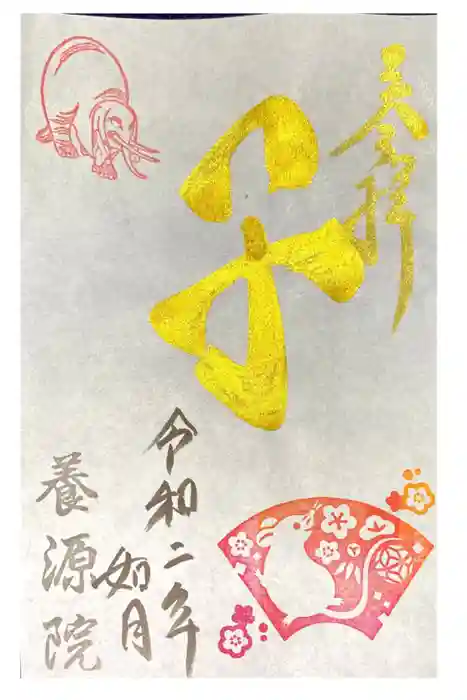 奉拝
子
令和二年
如月
養源院